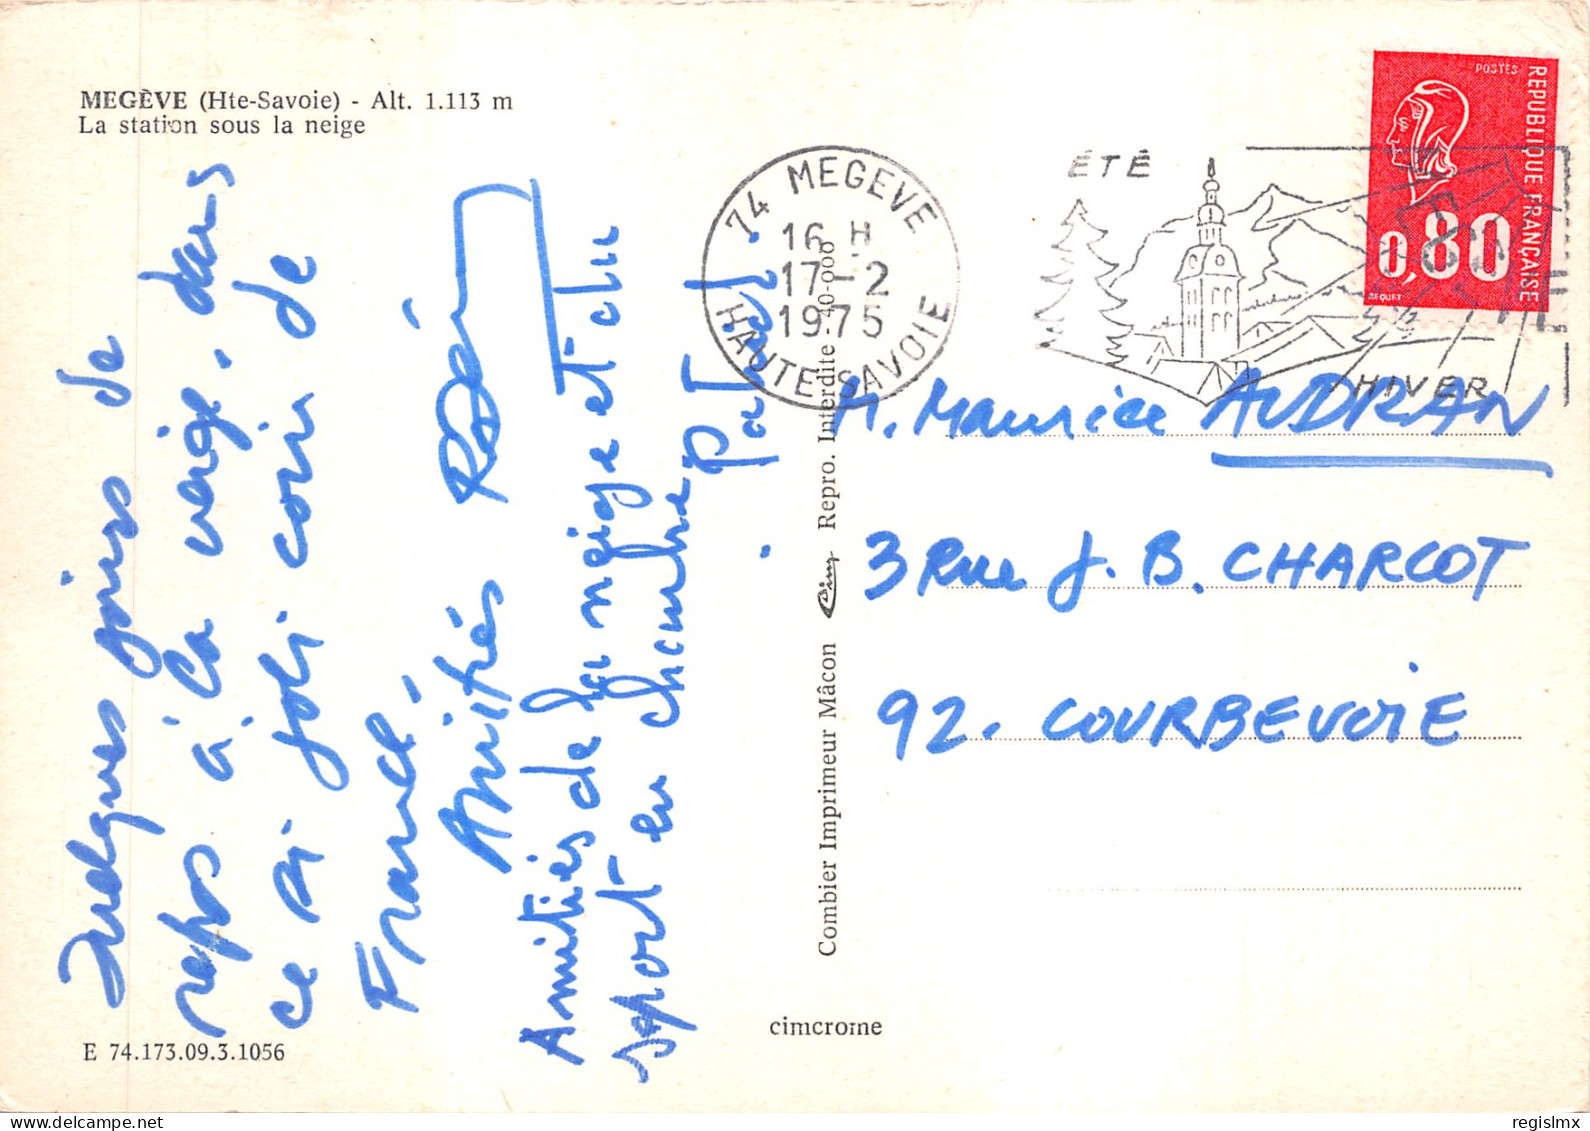 MEGÈVE (Hte-Savoie) - Alt. 1.113 m
La station sous la neige
Quelques jours de
repos à la neige, dans
ce si joli coin de
France.
Amitiés
Amitiés de la neige et du
sport en chambre
E 74.173.09.3.1056
cimcrome
Combier Imprimeur Mâcon Cim Repro. Interdite 40-000
74 MEGEVE
16 H
17-2
1975
HAUTE-SAVOIE
ÉTÉ
HIVER
POSTES
REPUBLIQUE FRANÇAISE
0,80
BEQUET
M. Maurice AUDRAN
3 Rue J. B. CHARCOT
92. COURBEVOIE
www.delcampe.net
regislmx